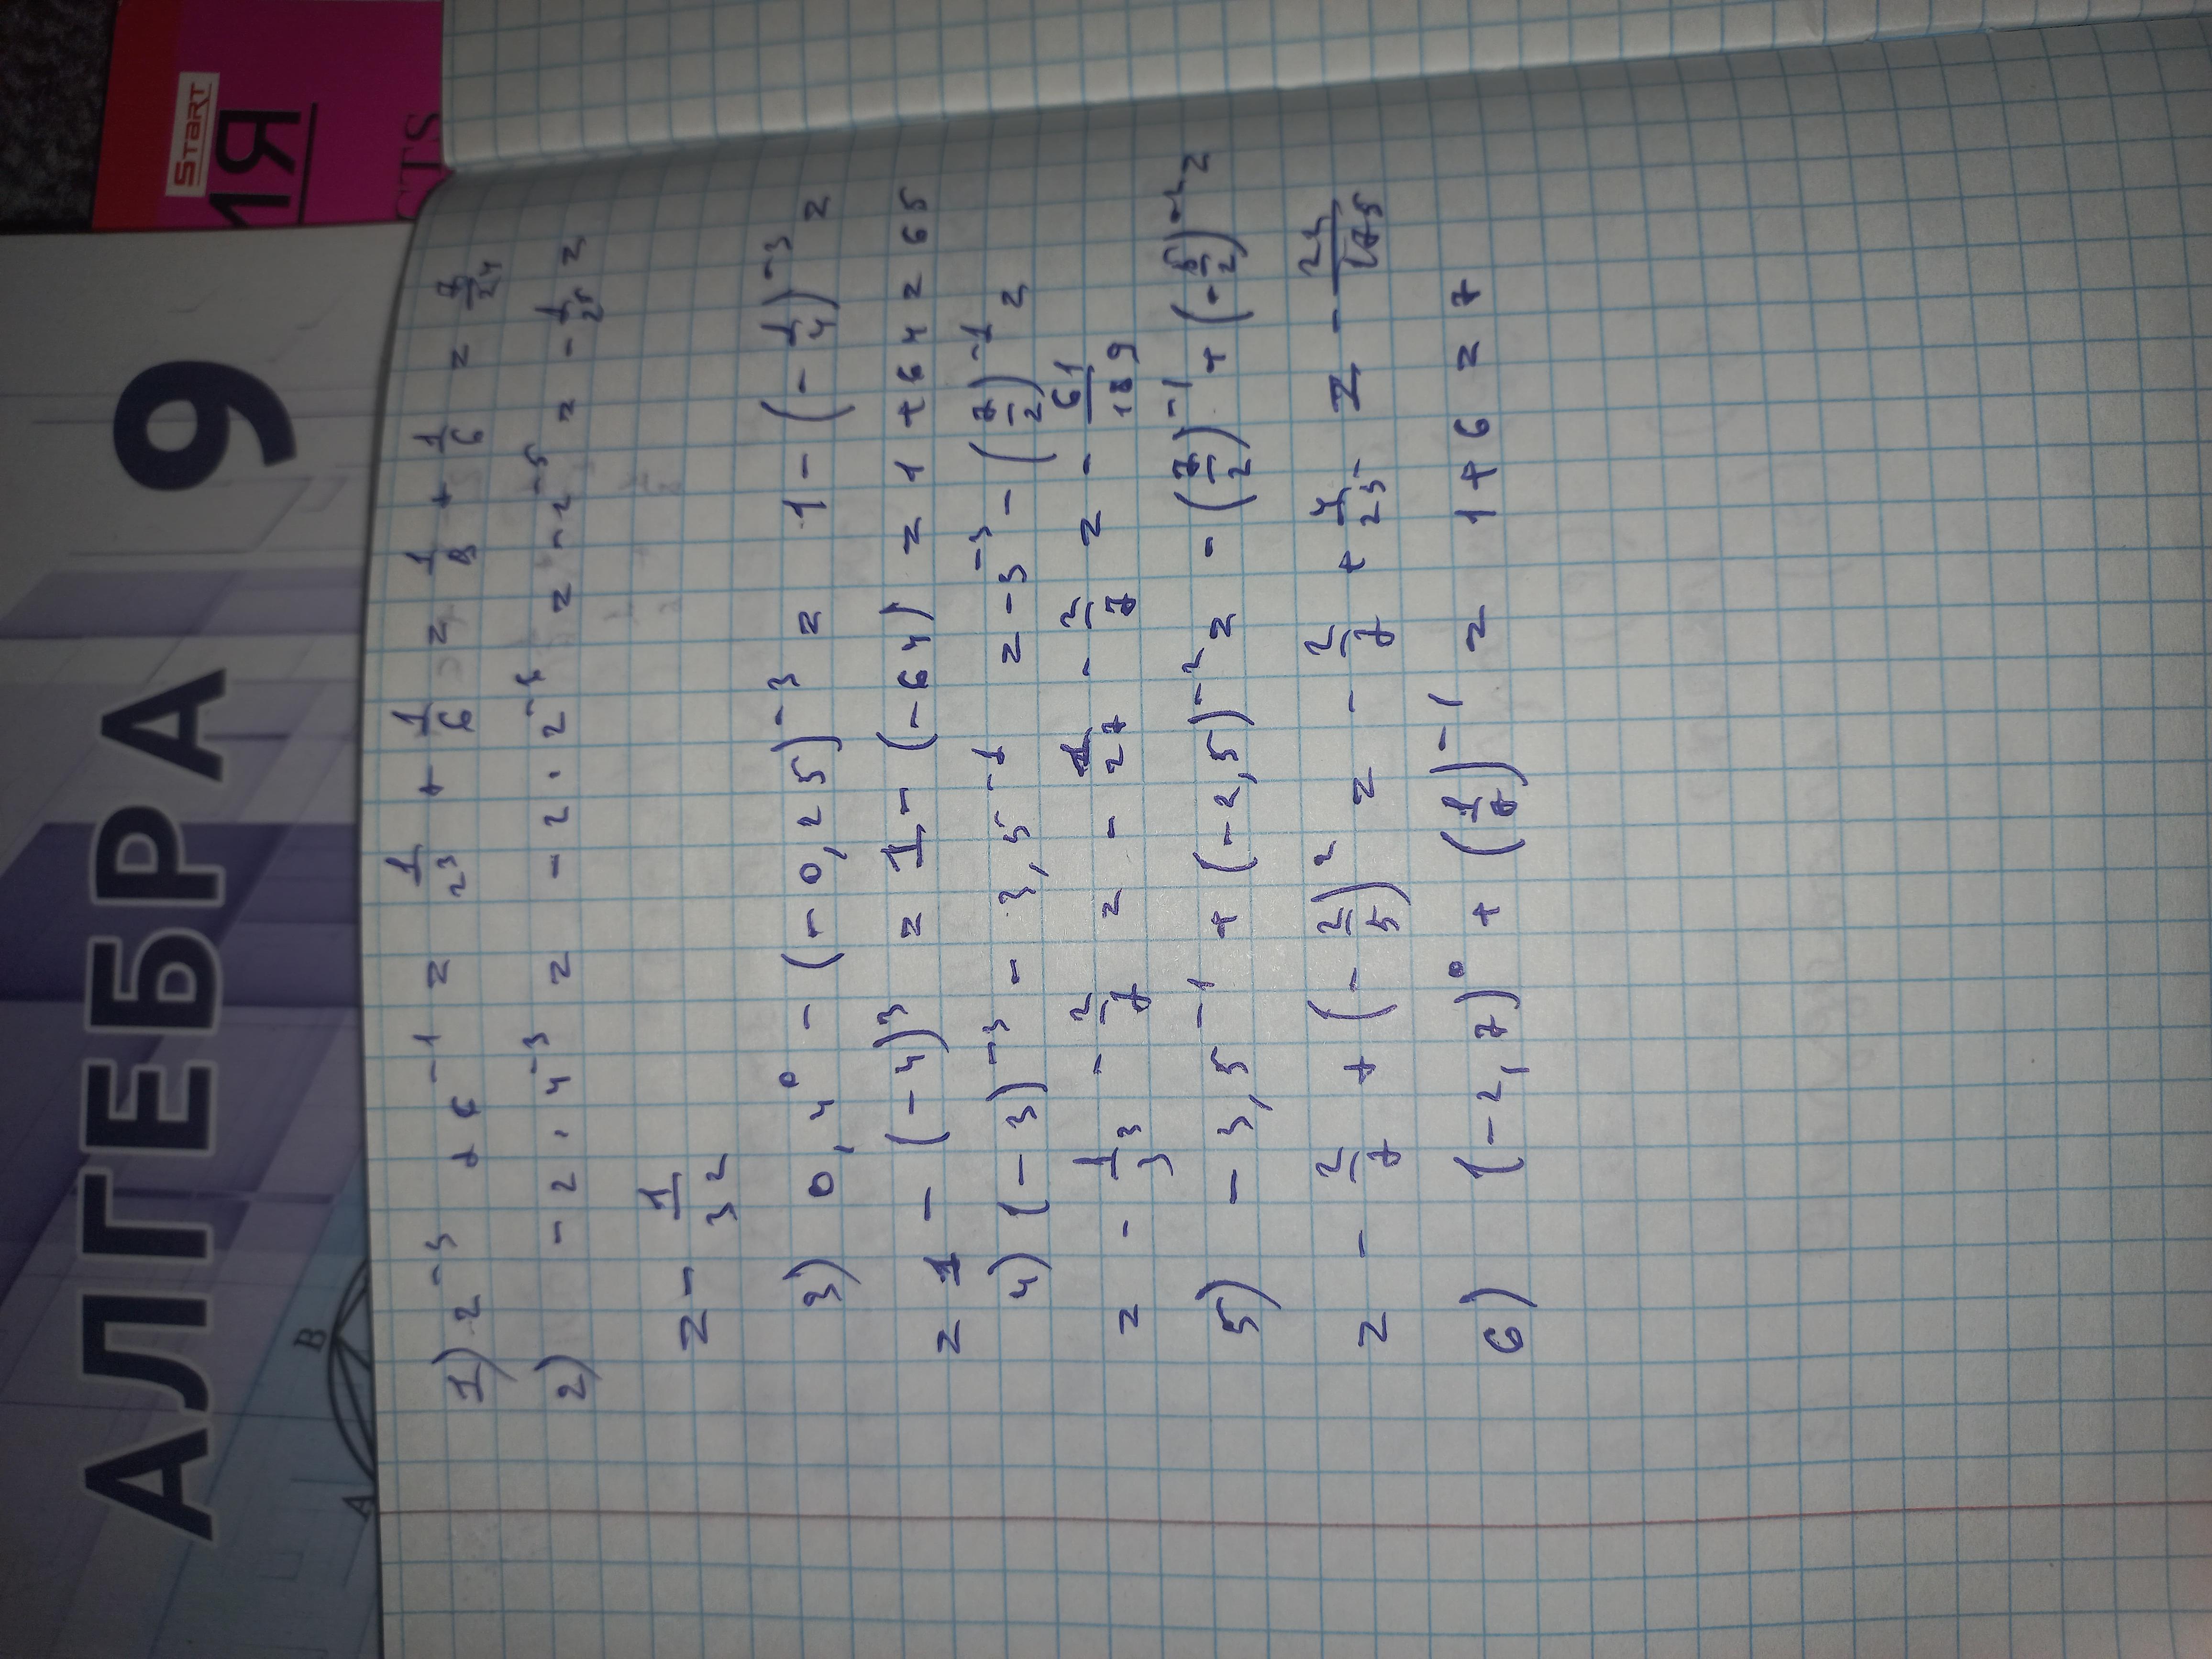 START
ИЯ
СТЅ
АЛГЕБРА 9
В
А
1) 2^-3 + 6^-1 = 1/2^3 + 1/6 = 1/8 + 1/6 = 7/24
2) -2 · 4^-3 = -2 · 2^-6 = -2^-5 = -1/2^5 =
= - 1/3 2
3) 0,4^0 - (-0,25)^-3 = 1 - (-1/4)^-3 =
= 1 - (-4)^3 = 1 - (-64) = 1 + 64 = 65
4) (-3)^-3 - 3,5^-1 = -3^-3 - (7/2)^-1 =
= - 1/3^3 - 2/7 = - 1/27 - 2/7 = - 61/189
5) - 3,5^-1 + (-2,5)^-2 = - (7/2)^-1 + (-5/2)^-2 =
= - 2/7 + (-2/5)^2 = - 2/7 + 4/25 = -
6) (-2,7)^0 + (1/6)^-1 = 1 + 6 = 7